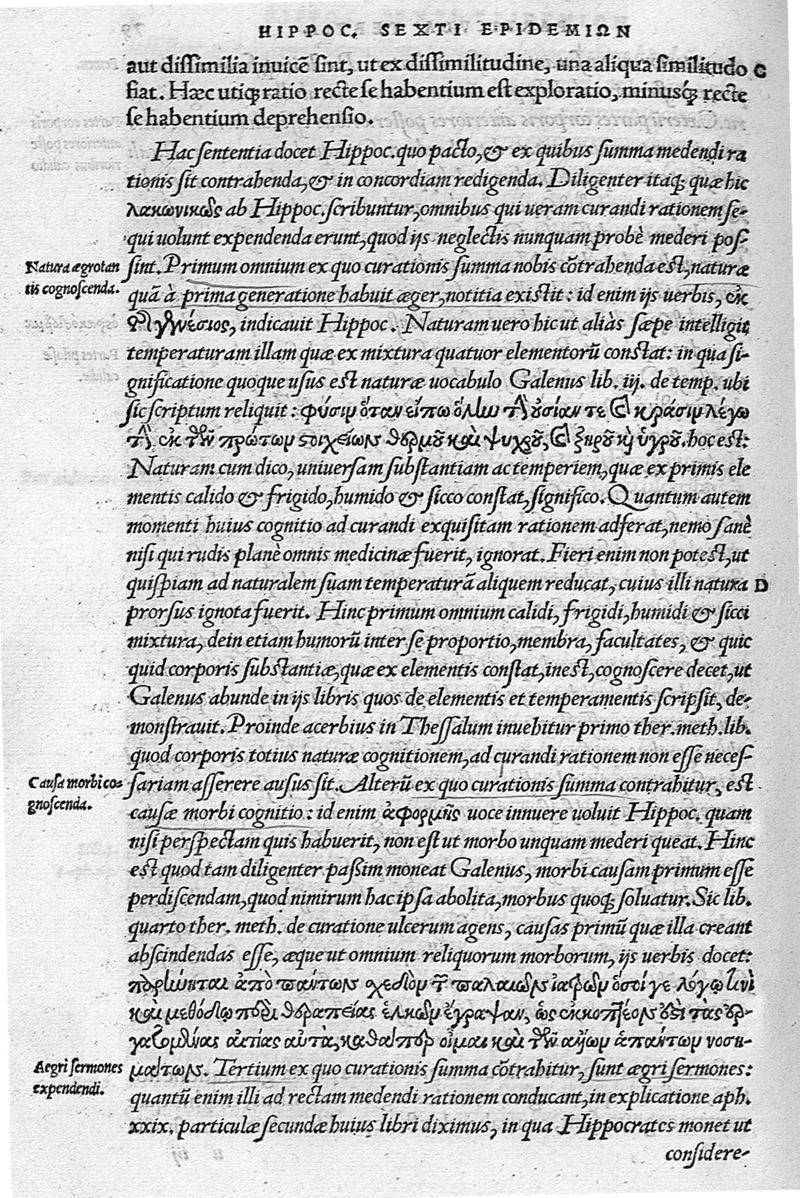 HIPPOC. SEXTI EPIDEMIΩN
aut dissimilia invicē sint, ut ex dissimilitudine, una aliqua similitudo C
fiat. Haec utiq; ratio recte se habentium est exploratio, minusq; recte
se habentium deprehensio.
Hac sententia docet Hippoc. quo pacto, & ex quibus summa medendi ra
tionis sit contrahenda, & in concordiam redigenda. Diligenter itaq; quæ hic
λακωνικῶς ab Hippoc. scribuntur, omnibus qui veram curandi rationem se-
qui uolunt expendenda erunt, quod ijs neglectis nunquam probè mederi pos-
Natura ægrotan
tis cognoscenda.
sint. Primum omnium ex quo curationis summa nobis cōtrahenda est, naturæ
quā à prima generatione habuit æger, notitia existit: id enim ijs verbis, ἐκ
τῆς γενέσιος, indicauit Hippoc. Naturam uero hic ut aliàs sæpe intelligit
temperaturam illam quæ ex mixtura quatuor elementorū constat: in qua si-
gnificatione quoque usus est naturæ uocabulo Galenus lib. iij. de temp. ubi
sic scriptum reliquit: φύσιν ὅταν εἴπω ὅλην τὴν οὐσίαν τε καὶ κρᾶσιν λέγω
τὴν ἐκ τῶν πρώτων στοιχείων θερμοῦ καὶ ψυχροῦ, καὶ ξηροῦ καὶ ὑγροῦ. hoc est:
Naturam cum dico, uniuersam substantiam ac temperiem, quæ ex primis ele
mentis calido & frigido, humido & sicco constat, significo. Quantum autem
momenti huius cognitio ad curandi exquisitam rationem adferat, nemo sanè
nisi qui rudis planè omnis medicinæ fuerit, ignorat. Fieri enim non potest, ut
quispiam ad naturalem suam temperaturā aliquem reducat, cuius illi natura D
prorsus ignota fuerit. Hinc primum omnium calidi, frigidi, humidi & sicci
mixtura, dein etiam humorū inter se proportio, membra, facultates, & quic
quid corporis substantiæ, quæ ex elementis constat, inest, cognoscere decet, ut
Galenus abunde in ijs libris quos de elementis et temperamentis scripsit, de-
monstrauit. Proinde acerbius in Thessalum inuehitur primo ther. meth. lib.
quod corporis totius naturæ cognitionem, ad curandi rationem non esse neces-
Causa morbi co-
gnoscenda.
sariam asserere ausus sit. Alterū ex quo curationis summa contrahitur, est
causæ morbi cognitio: id enim ἀφορμῆς uoce innuere uoluit Hippoc. quam
nisi perspectam quis habuerit, non est ut morbo unquam mederi queat. Hinc
est quod tam diligenter passim moneat Galenus, morbi causam primum esse
perdiscendam, quod nimirum hac ipsa abolita, morbus quoq; soluatur. Sic lib.
quarto ther. meth. de curatione ulcerum agens, causas primū quæ illa creant
abscindendas esse, æque ut omnium reliquorum morborum, ijs uerbis docet:
εἴρηται ἀπὸ πάντων σχεδὸν τῶν παλαιῶν ἰατρῶν ὅσοι γε λόγῳ τινὶ
καὶ μεθόδῳ περὶ θεραπείας ἑλκῶν ἔγραψαν, ὡς ἐκκοπτέον ἐστὶ τὰς ἐρ-
γαζομένας αἰτίας αὐτὰ, καθάπερ οἶμαι καὶ τῶν ἄλλων ἁπάντων νοση-
Aegri sermones
expendendi.
μάτων. Tertium ex quo curationis summa cōtrahitur, sunt ægri sermones:
quantū enim illi ad rectam medendi rationem conducant, in explicatione aph.
xxix. particulæ secundæ huius libri diximus, in qua Hippocrates monet ut
considere-